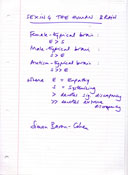 SEXING THE HUMAN BRAIN
Female-typical brain:
E > S
Male-typical brain:
S > E
Autism-typical brain:
S >> E
where E = Empathy
S = Systemising
> denotes sig. discrepancy
>> denotes extreme discrepancy
Simon Baron-Cohen